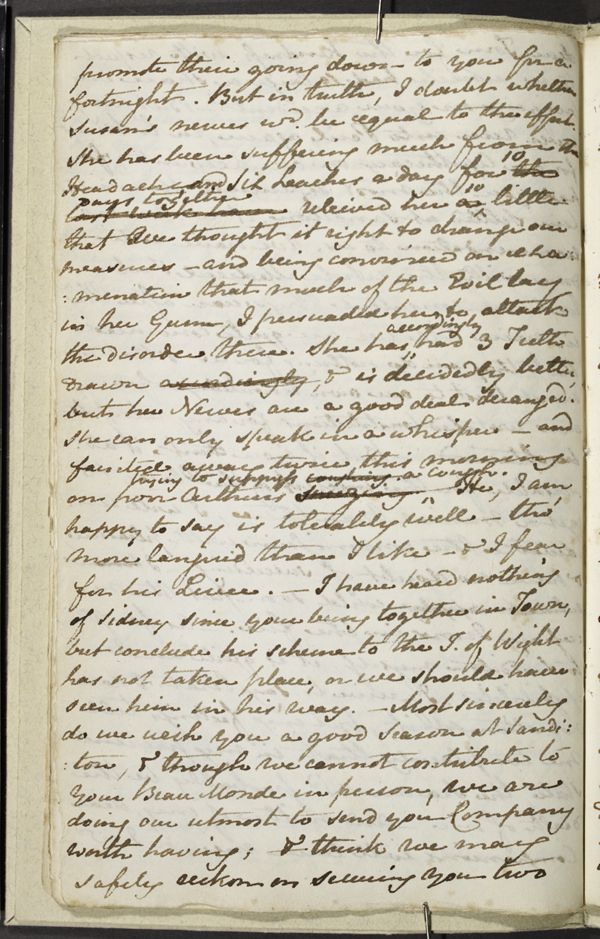 promote their going down to you for a
fortnight. But in truth, I doubt whether
Susan's nerves wd. be equal to the effort.
She has been suffering much from the
Headache and Six Leaches a day for the 10
days together
last week have releived her so little
that We thought it right to change our
measures – and being convinced on exa:
:mination that much of the Evil lay
in her Gum, I persuaded her to attack
the disorder there. She has accordingly had 3 Teeth
drawn accordingly, & is decidedly better,
but her Nerves are a good deal deranged.
She can only speak in a whisper – and
fainted away twice this morning
on poor Arthur's trying to suppress coughing a cough.
sneezing He, I am
happy to say is tolerably well – tho'
more languid than I like – & I fear
for his Liver. – I have heard nothing
of Sidney since your being together in Town,
but conclude his scheme to the I. of Wight
has not taken place, or we should have
seen him in his way. – Most sincerely
do we wish you a good Season at Sandi:
:ton, & though we cannot contribute to
your Beau Monde in person, we are
doing our utmost to send you Company
worth having; & think we may
safely reckon on securing you two